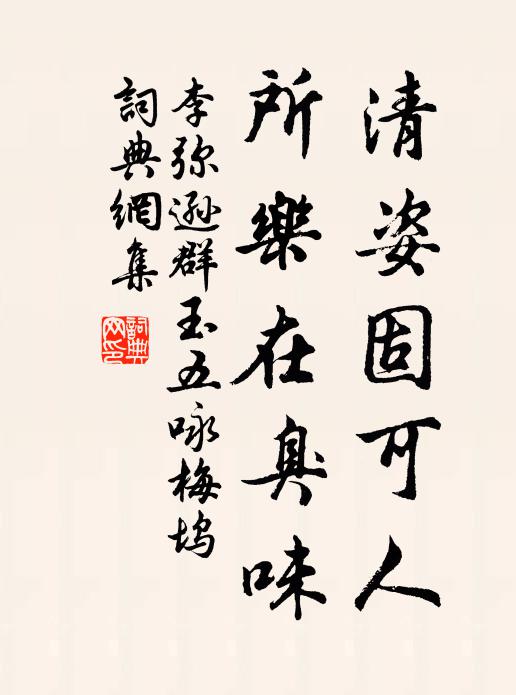 清姿固可人
所樂在臭味
李弥遜群玉五咏梅塢
詞典網集
詞典网印